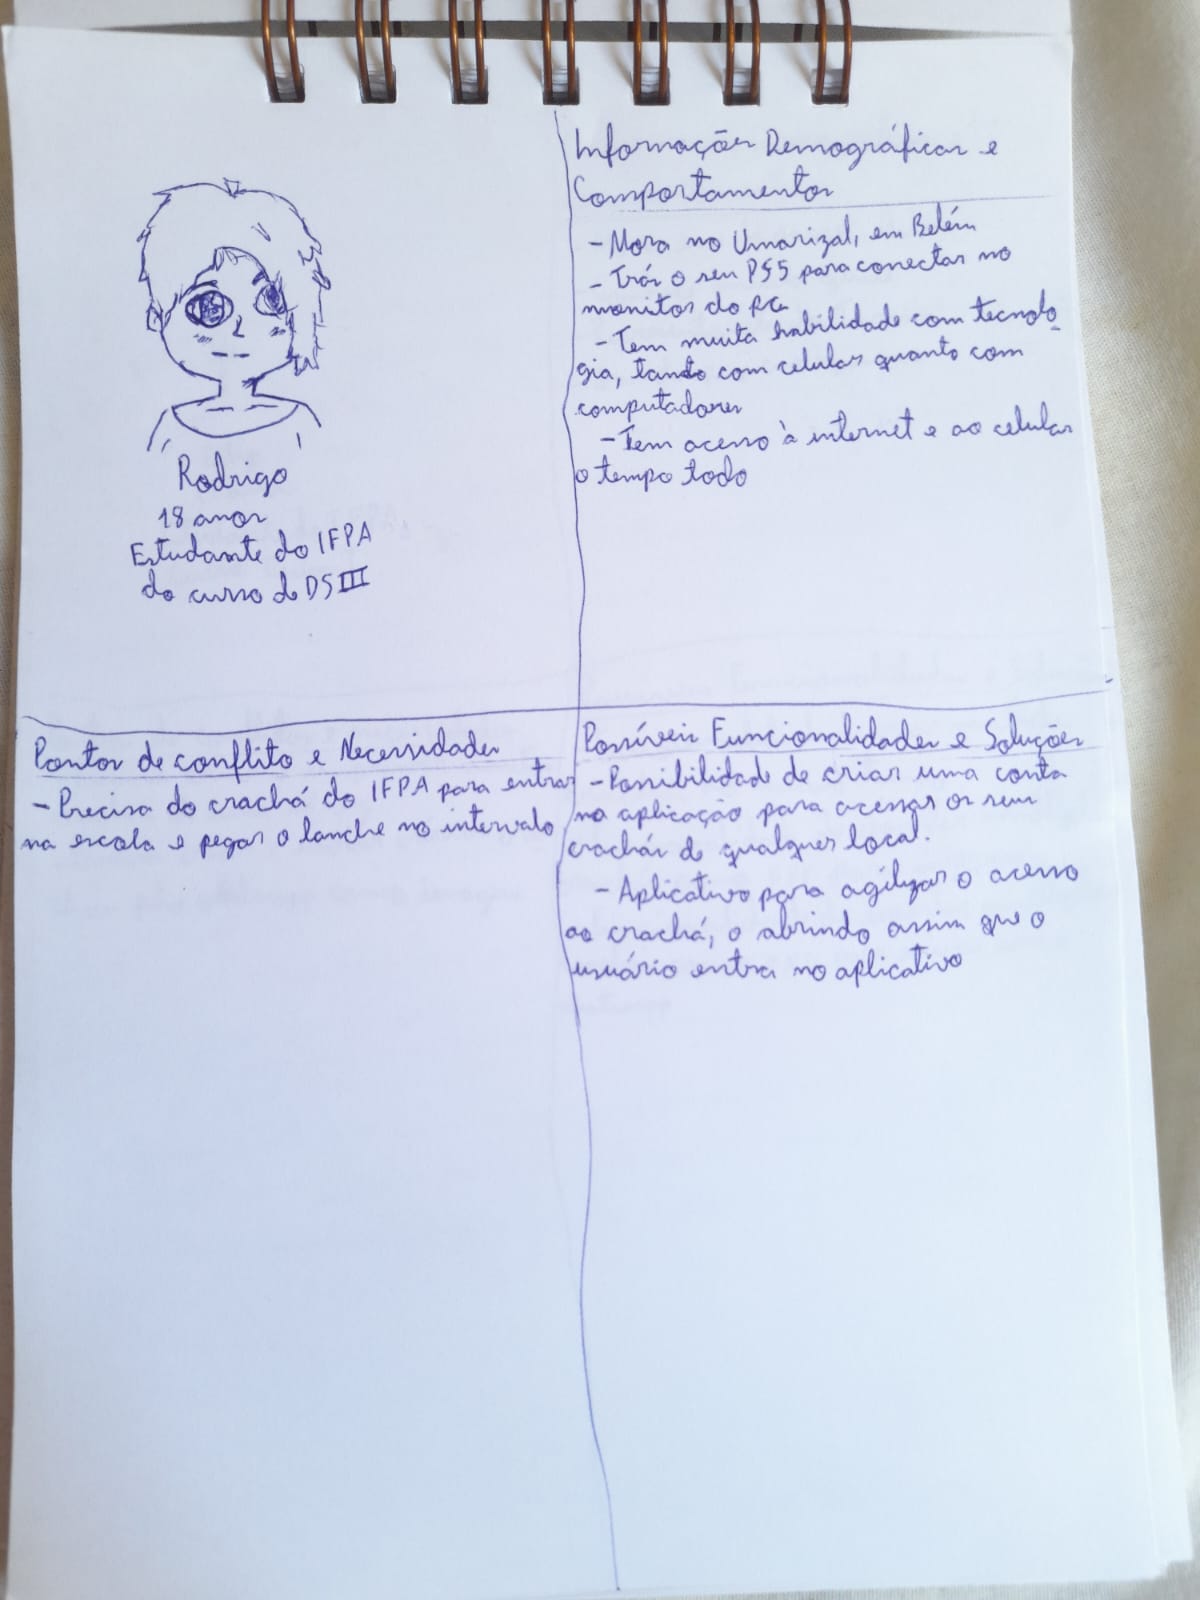 Rodrigo
18 anos
Estudante do IFPA
do curso de DS III
Informações Demográficas e
Comportamentos
- Mora no Umarizal, em Belém
- Trás o seu PS5 para conectar no
monitor do PC
- Tem muita habilidade com tecnolo-
gia, tando com celular quanto com
computadores
- Tem acesso à internet e ao celular
o tempo todo
Pontos de conflito e Necessidades
- Precisa do crachá do IFPA para entrar
na escola e pegar o lanche no intervalo
Possíveis Funcionalidades e Soluções
- Possibilidade de criar uma conta
na aplicação para acessar os seus
crachás de qualquer local.
- Aplicativo para agilizar o acesso
ao crachá, o abrindo assim que o
usuário entra no aplicativo